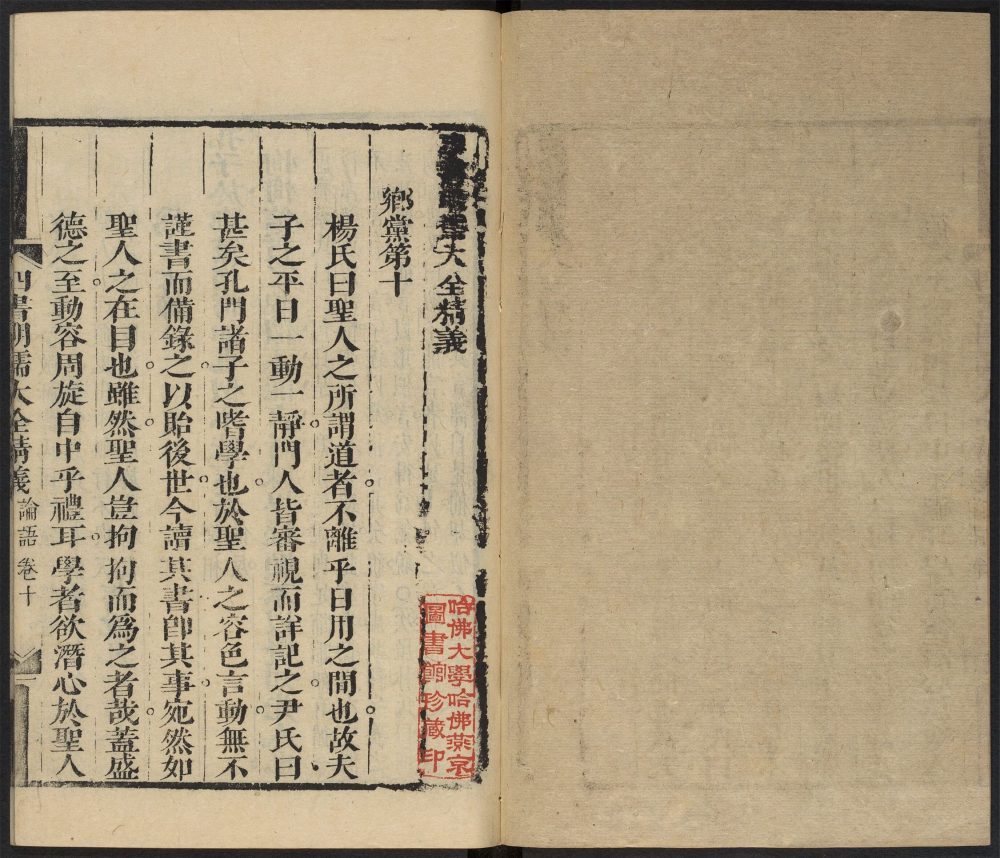 大全精義
鄉黨第十
楊氏曰聖人之所謂道者不離乎日用之間也故夫
子之平日一動一靜門人皆審視而詳記之尹氏曰
甚矣孔門諸子之嗜學也於聖人之容色言動無不
謹書而備錄之以貽後世今讀其書卽其事宛然如
聖人之在目也雖然聖人豈拘拘而爲之者哉蓋盛
德之至動容周旋自中乎禮耳學者欲潛心於聖人
四書明儒大全精義 論語卷十
哈佛大學哈佛燕京
圖書館珍藏印